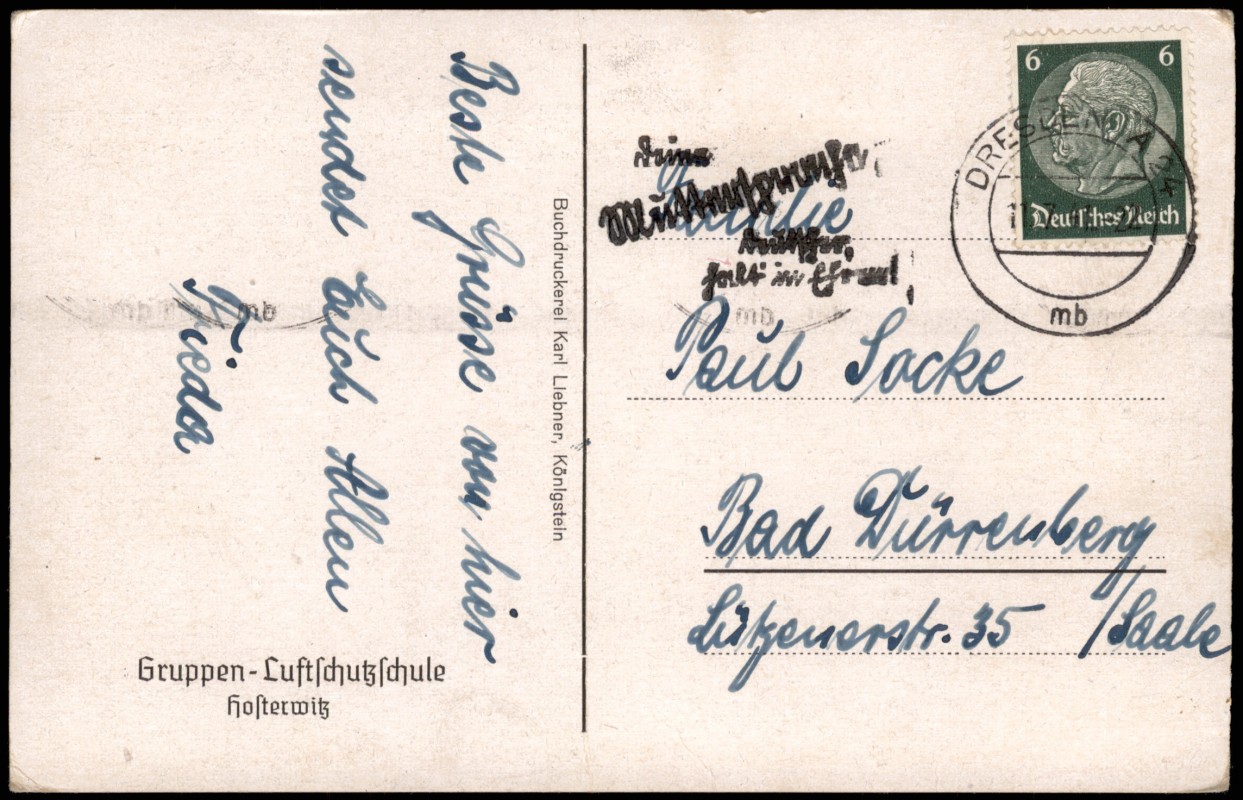 Beste Grüsse von hier
sendet Euch Allen
Frieda
Gruppen-Luftschutzschule
Hosterwitz
Buchdruckerei Karl Liebner, Königstein
6 6
Deutsches Reich
DRESDEN A 24
mb
Deine
Muttersprache,
Deutscher,
halt in Ehren!
Familie
Paul Socke
Bad Dürrenberg
/Saale
Lützenerstr. 35
mb
mb